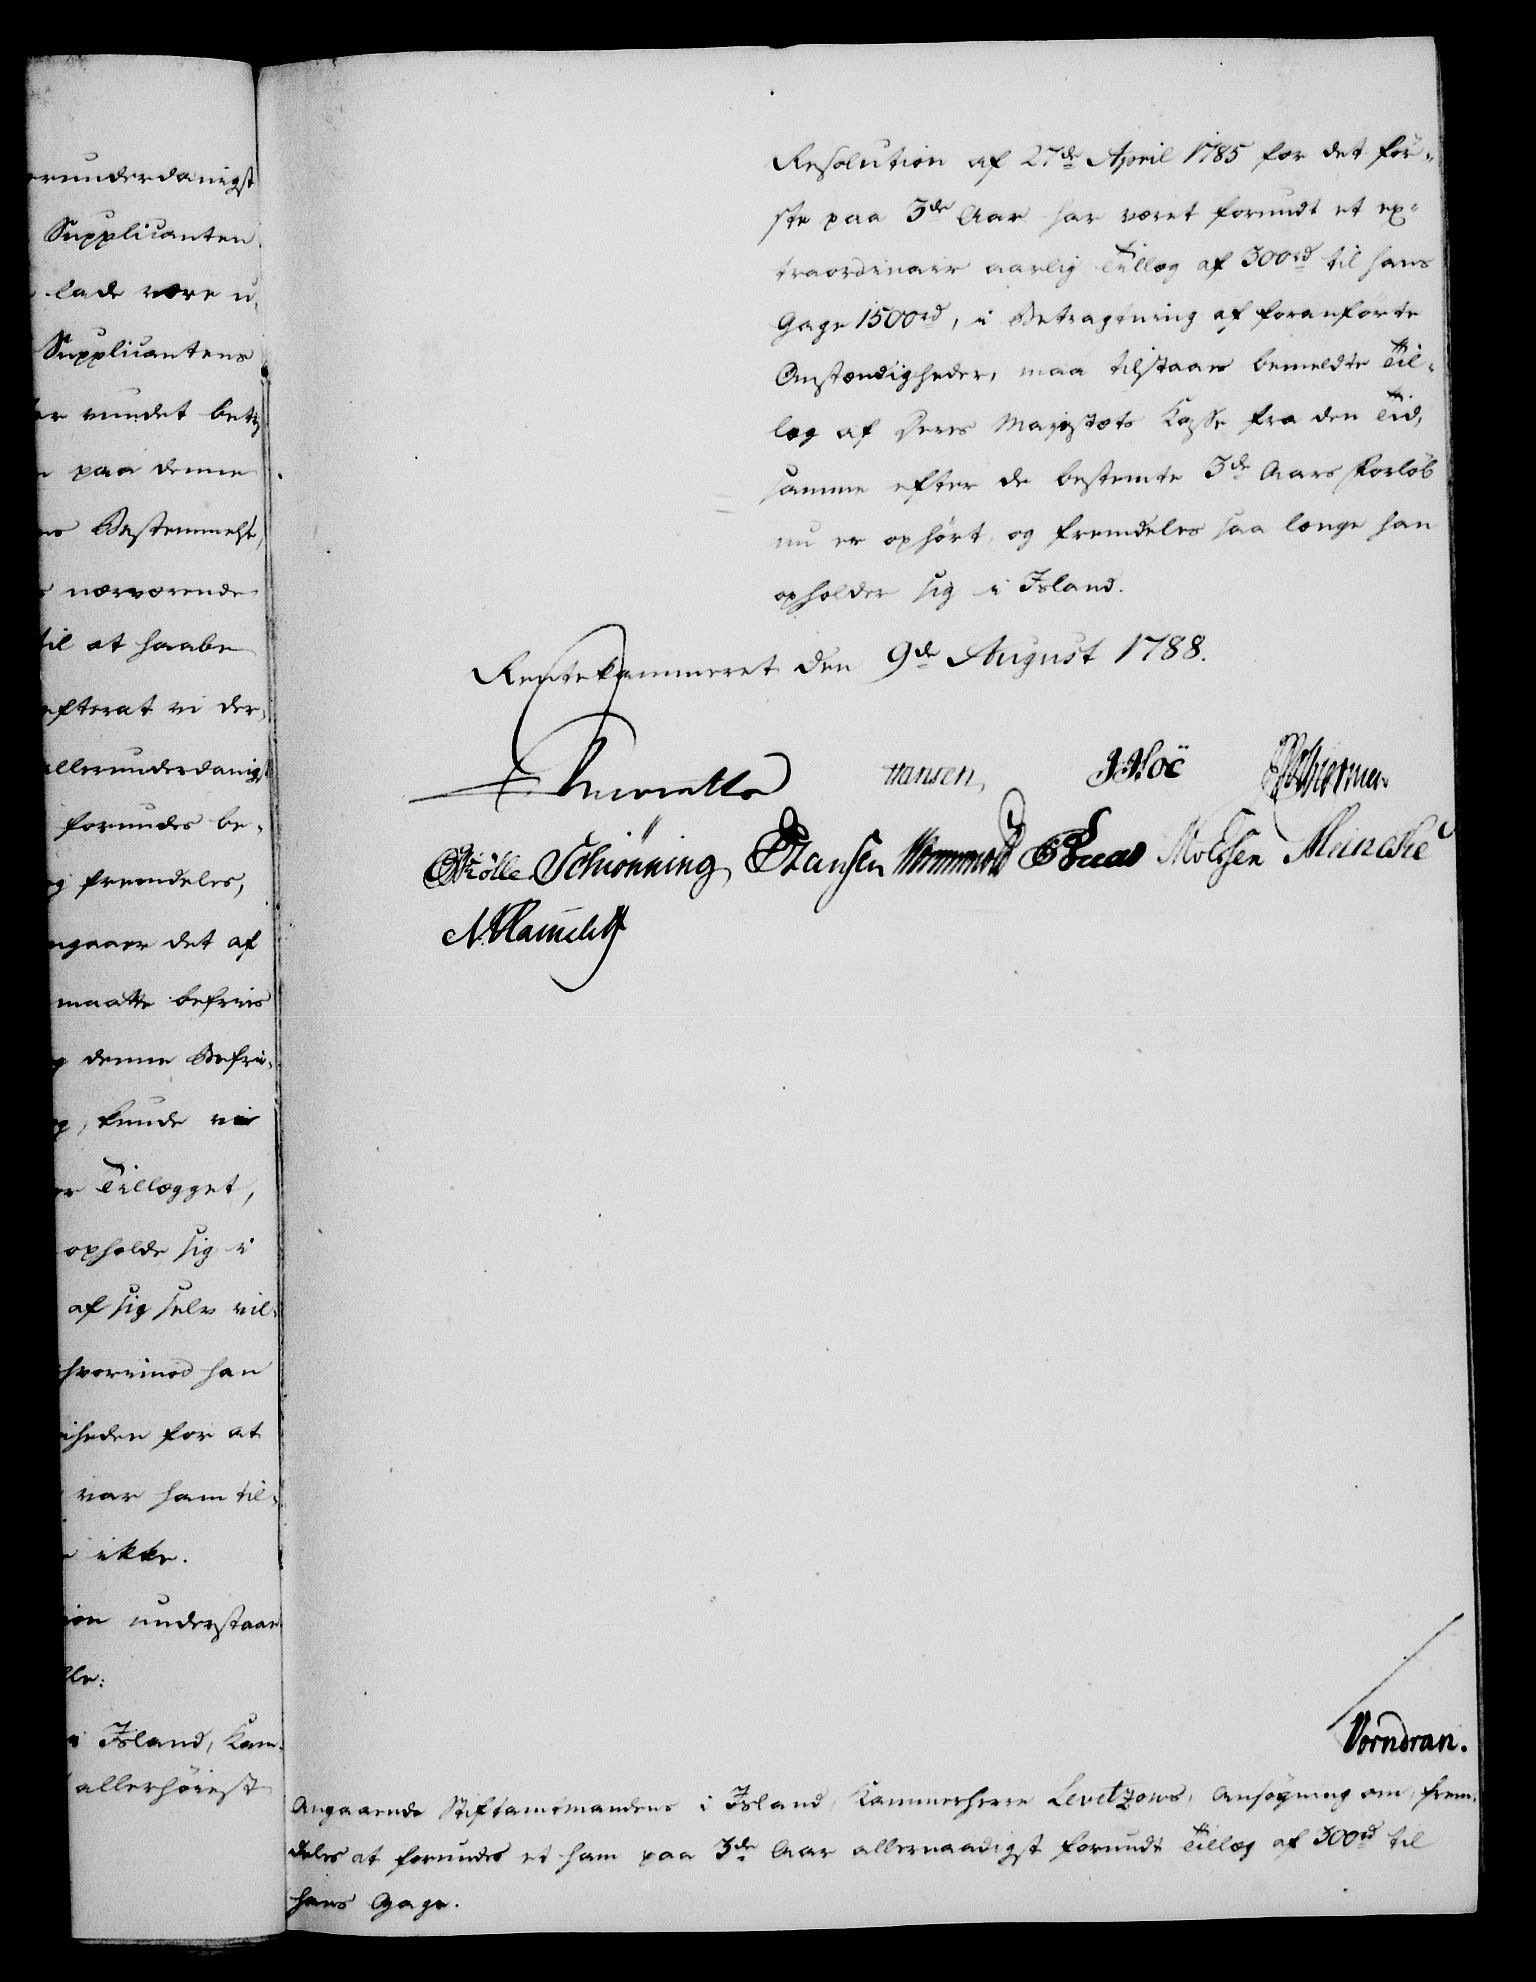 erunderdanigst
Supplicanten
lade være u,
Supplicantens
er vundet bety
paa denne
es Bestemmelse,
nærværende
til at haabe
efterat vi der,
allerunderdanigst
forundes be,
og fremdeles,
ngaaer det af
maatte befries
denne Befri,
kunde vi
er Tillægget,
opholde sig i
af sig selv vil,
hvorimod han
heden for at
var ham til,
ikke.
ion understaae
lle:
i Island, Kam,
allerhøiest
Resolution af 27de April 1785 for det før,
ste paa 3de Aar har været forundt et ex,
traordinair aarlig Tillæg af 300rd til hans
Gage 1500rd, i Betragtning af foranførte
Omstændigheder, maa tilstaaes bemeldte Til,
læg af Deres Majestæts Kasse fra den Tid,
samme efter de bestemte 3de Aars Forløb
nu er ophørt, og fremdeles saa længe han
opholder sig i Island.
Rentekammeret den 9de August 1788.
Hansen,
Schiønning, Hansen Wormwold Molssen Meincke
Vorndran.
Angaaende Stiftamtmandens i Island, Kammerherre Levetzows, Ansøgning om frem,
deles at forundes et ham paa 3de Aar allernaadigst forundt Tillæg af 300rd til
hans Gage.